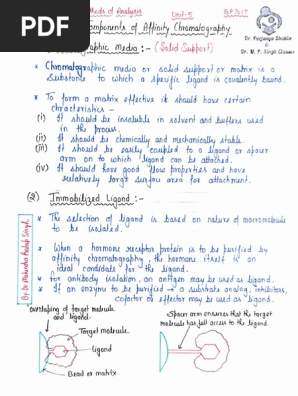 PDF
Methods of Analysis Unit-5 BP701T
Components of Affinity Chromatography
Dr. Puspanjay Shukla
&
Dr. M. P. Singh Classes
Chromatographic Media :- (Solid Support)
* Chromatographic media or solid support or matrix is a
substance to which a specific ligand is covalently bound.
* To form a matrix effective it should have certain
charcteristics -
(i) It should be insoluble in solvent and buffers used
in the process.
(ii) It should be chemically and mechanically stable.
(iii) It should be easily coupled to a ligand or spacer
arm on to which ligand can be attached.
(iv) It should have good flow properties and have
relatively large surface area for attachment.
(2) Immobilized Ligand :-
* The selection of ligand is based on nature of macromolecule
to be isolated.
* When a hormone receptor protein is to be purified by
affinity chromatography, the hormone itself is an
ideal candidate for the ligand.
* For antibody isolation, an antigen may be used as ligand.
* If an enzyme to be purified → a substrate analog, inhibitors,
cofactor or effector may be used as ligand.
By: Dr. Mahendra Pratap Singh
overlapping of target molecule
and ligand.
Target molecule
Ligand
Bead or matrix
Spacer arm ensures that the target
molecule has full access to the ligand.